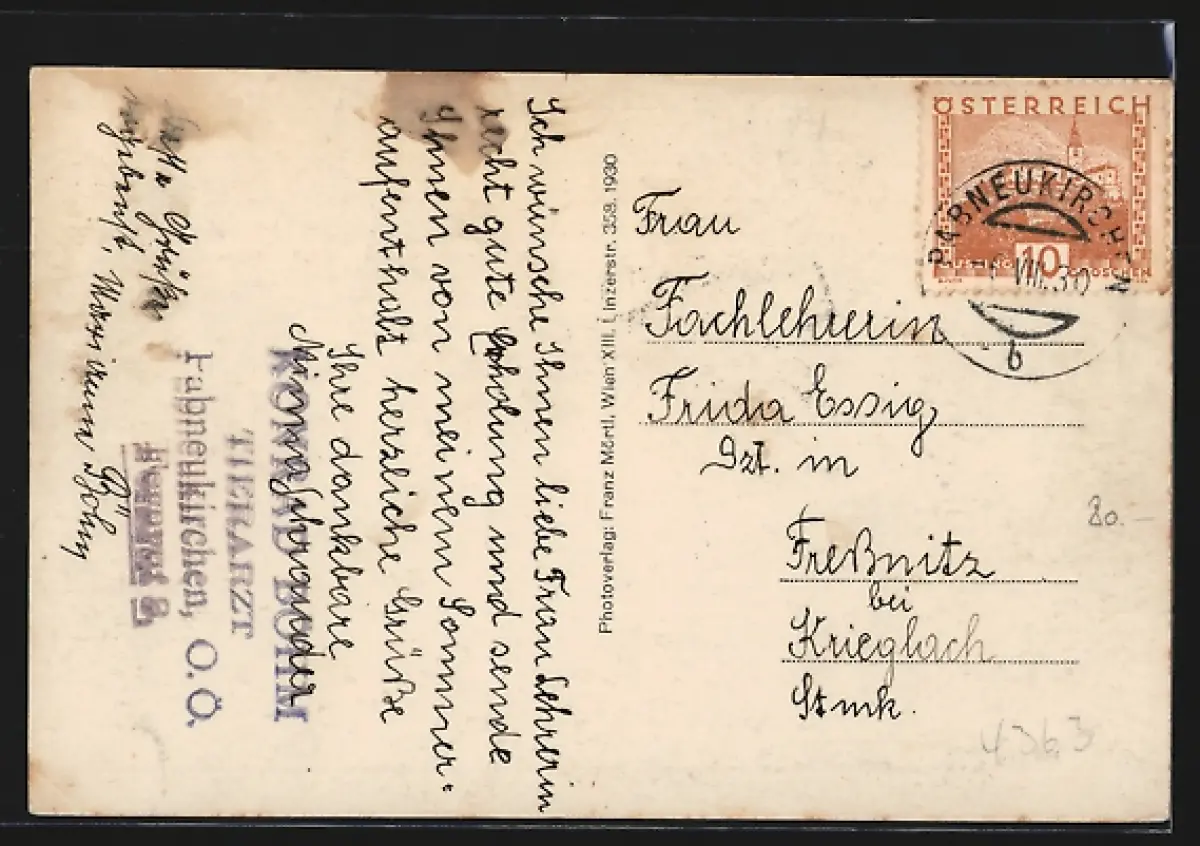 Ich wünsche Ihnen liebe Frau Lehrerin
recht gute Erholung und sende
Ihnen von meinem Sommer-
aufenthalt herzliche Grüße
Ihre dankbare
Mina
KONRAD BÖHM
TIERARZT
Gallneukirchen, O. Ö.
Fernruf 8.
Grüße
Böhm
Photoverlag: Franz Mörtl, Wien XIII. Linzerstr. 358. 1930
ÖSTERREICH
10
GROSCHEN
VIII.30
b
Frau
Fachlehrerin
Frida Essig
Dzt. in
Freßnitz
bei
Krieglach
Stmk.
80.-
4363